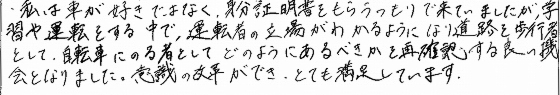 私は車が好きではなく、身分証明書をもらうつもりで来ていましたが、学
習や運転をする中で、運転者の立場がわかるようになり道路を歩行者
として、自転車にのる者としてどのようにあるべきかを再確認する良い機
会となりました。意識の改革ができ、とても満足しています。